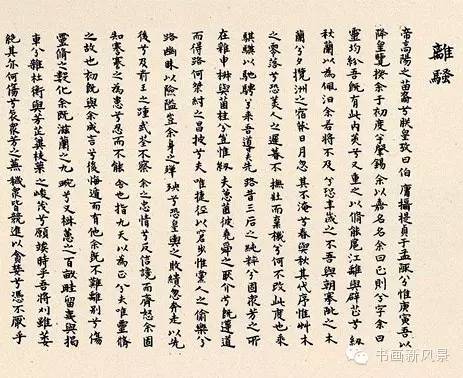 離騷
帝高陽之苗裔兮朕皇攷曰伯庸攝提貞于孟陬兮惟庚寅吾以
降皇覽揆余于初度兮肇錫余以嘉名名余曰正則兮字余曰
靈均紛吾既有此内美兮又重之以脩能扈江離與辟芷兮紉
秋蘭以為佩汩余若將不及兮恐年歲之不吾與朝搴阰之木
蘭兮夕攬洲之宿莽日月忽其不淹兮春與秋其代序惟艸木
之零落兮恐美人之遲暮不撫壯而棄穢兮何不改此度也乘
騏驥以馳騁兮來吾道夫先路昔三后之純粹兮固衆芳之所
在雜申椒與菌桂兮豈惟紉夫蕙茝彼堯舜之耿介兮既遵道
而得路何桀紂之昌披兮夫唯捷徑以窘步惟黨人之偷樂兮
路幽昧以險隘豈余身之殫殃兮恐皇輿之敗績忽奔走以先
後兮及前王之踵武荃不察余之忠情兮反信讒而齌怒余固
知謇謇之為患兮忍而不能舍也指九天以為正兮夫唯靈脩
之故也初既與余成言兮後悔遁而有他余既不難離別兮傷
靈脩之數化余既滋蘭之九畹兮又樹蕙之百畝畦留夷與揭
車兮雜杜衡與芳芷冀枝葉之峻茂兮願竢時乎吾將刈雖萎
絕其亦何傷兮哀衆芳之蕪穢衆皆競進以貪婪兮憑不厭乎
书画新风景